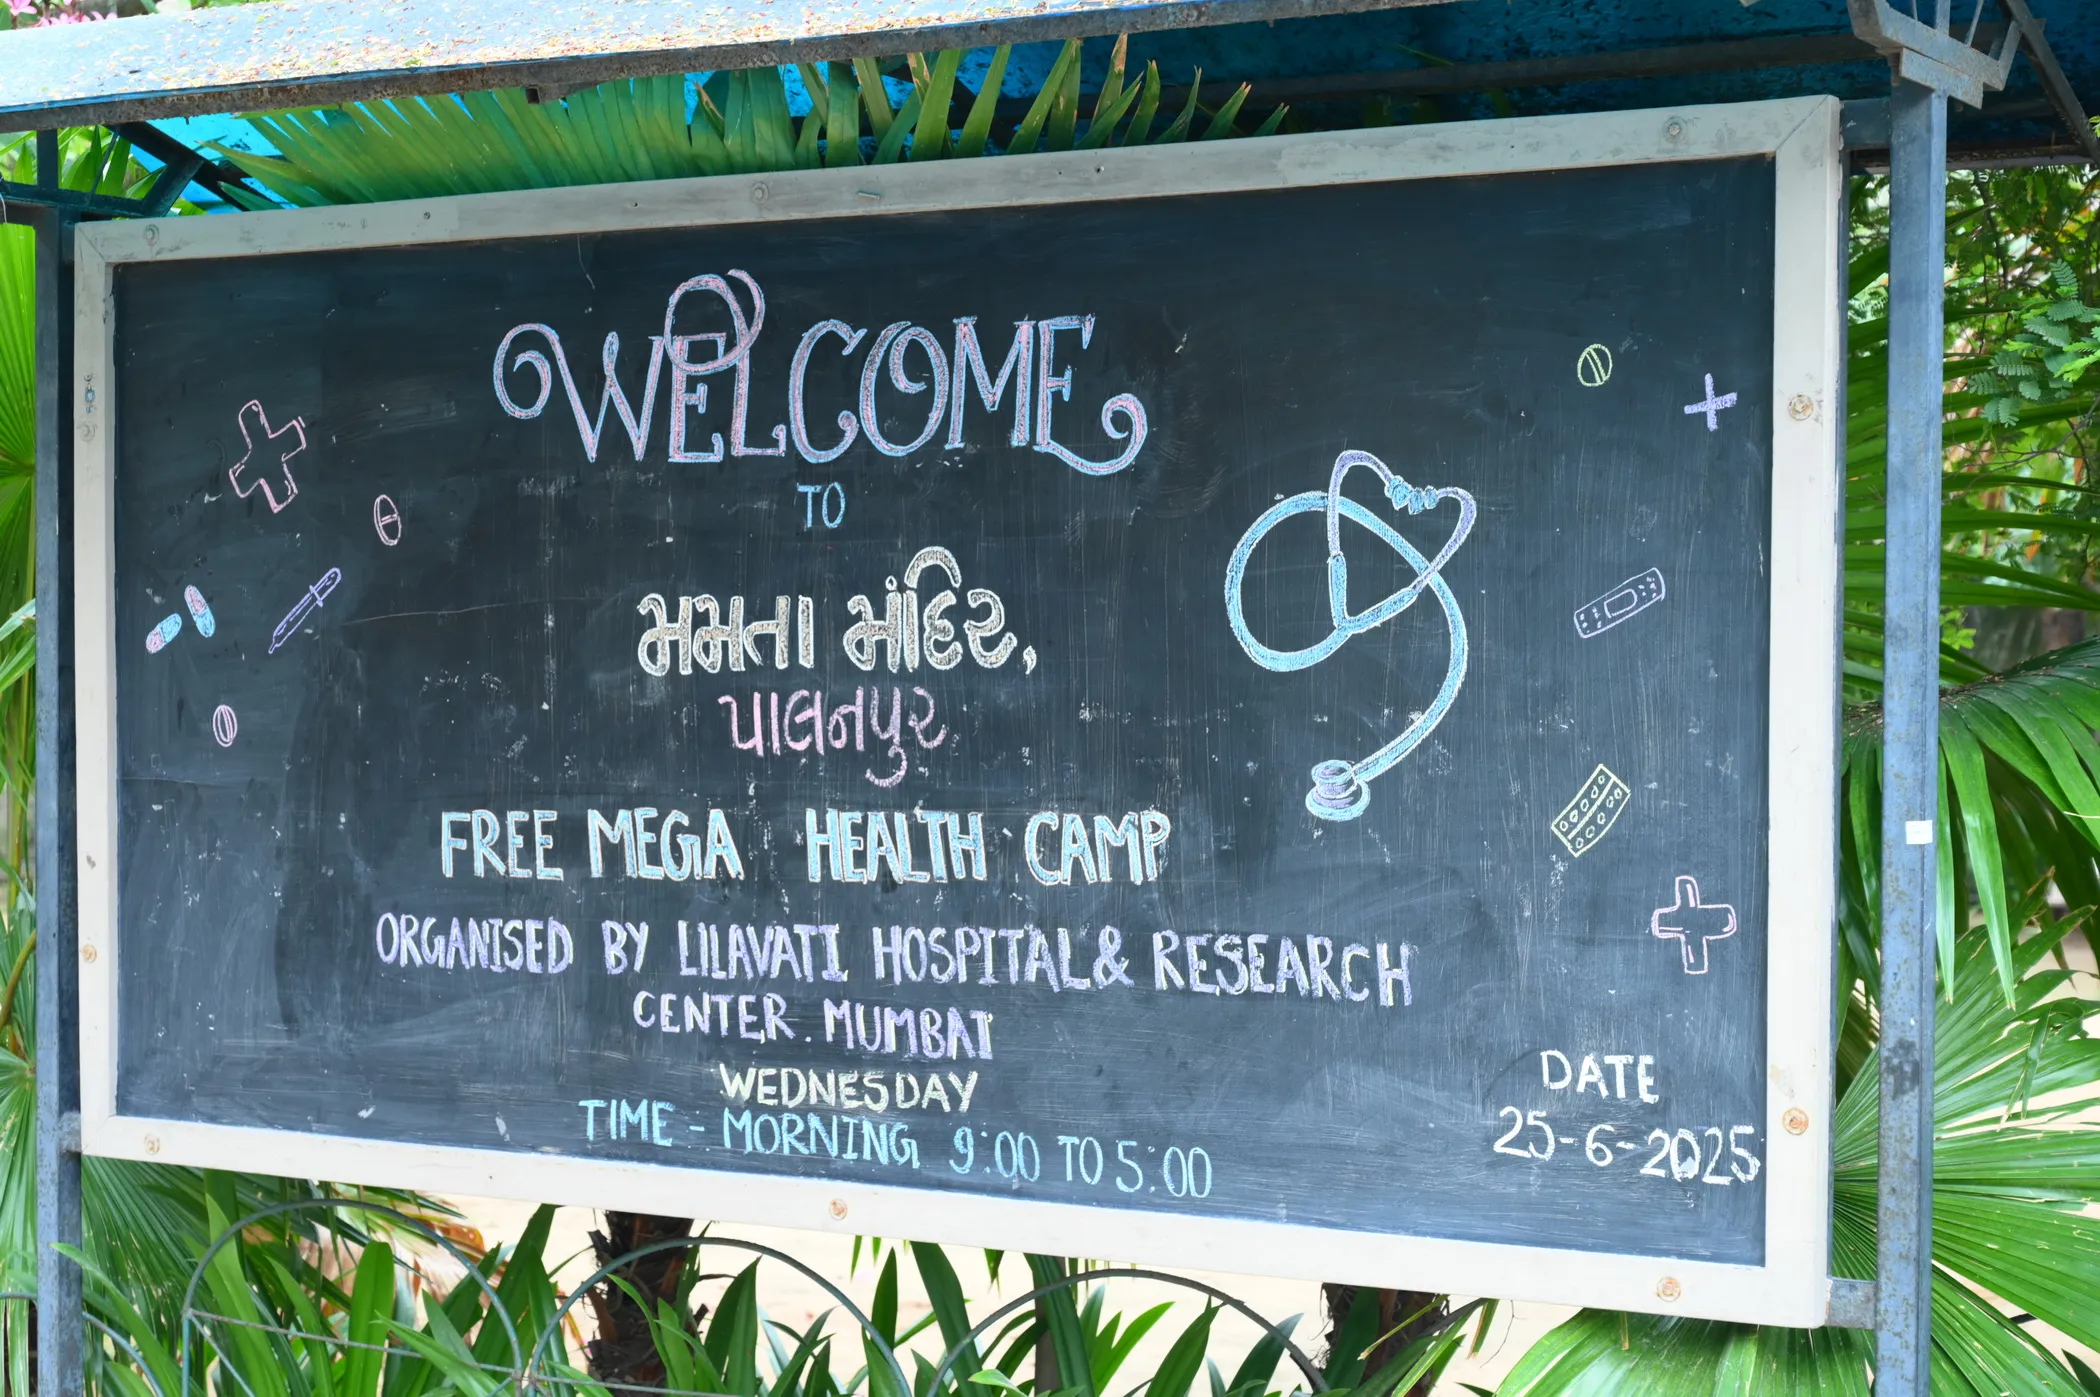 WELCOME
TO
મમતા મંદિર,
પાલનપુર
FREE MEGA HEALTH CAMP
ORGANISED BY LILAVATI HOSPITAL & RESEARCH
CENTER. MUMBAI
WEDNESDAY
TIME - MORNING 9:00 TO 5:00
DATE
25-6-2025